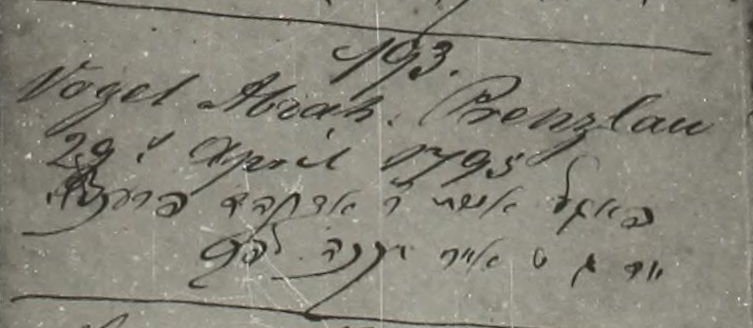 193.
Vogel Abrah. Prenzlau
29 April 1795
פאגל אשת ר אברהם
ג ט אייר תקנה לפק